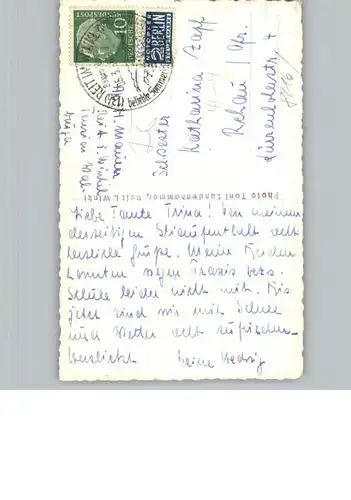 BUNDESPOST
10
NOTOPFER
2 BERLIN
STEUERMARKE
REIT IM
beliebte Sommer
Schwester
Katharina Zapf
Rehau / Ofr.
Photo Toni Landenhammer, Reit i. Winkl
Liebe Tante Trina! Von meinem
derzeitigen Skiaufenthalt recht
herzliche Grüße. Meine Kinder
konnten wegen Praxis bezw.
Schule leider nicht mit. Bis
jetzt sind wir mit Schnee
und Wetter recht zufrieden.
Herzlichst Deine Hedwig